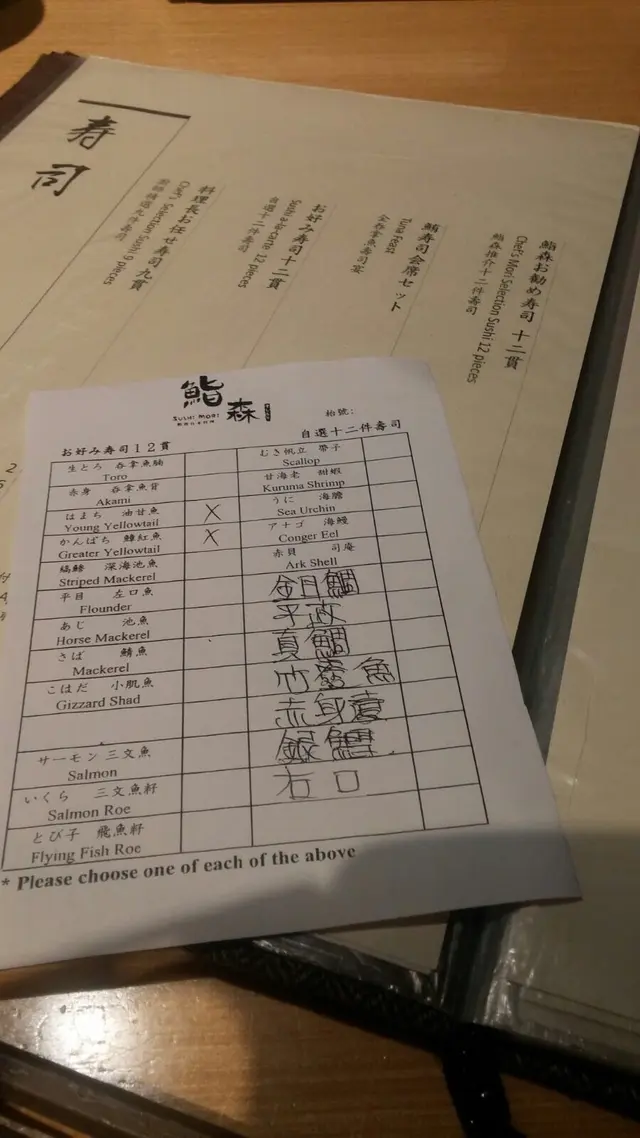 寿司
鮨森お勧め寿司 十二貫
Chef's Mori Selection Sushi 12 pieces
鮨森推介十二件壽司
鮪寿司会席セット
Tuna Feast
全吞拿魚壽司宴
お好み寿司十二貫
Sushi a-la-carte 12 pieces
自選十二件壽司
料理長お任せ寿司九貫
Chef's Selection Sushi 9 pieces
廚師精選九件壽司
鮨森
SUSHI MORI
枱號:
お好み寿司12貫
自選十二件壽司
生とろ 吞拿魚腩
Toro
赤身 吞拿魚背
Akami
はまち 油甘魚
Young Yellowtail
X
かんぱち 鰤紅魚
Greater Yellowtail
X
縞鯵 深海池魚
Striped Mackerel
平目 左口魚
Flounder
あじ 池魚
Horse Mackerel
さば 鯖魚
Mackerel
こはだ 小肌魚
Gizzard Shad
サーモン 三文魚
Salmon
いくら 三文魚籽
Salmon Roe
とび子 飛魚籽
Flying Fish Roe
むき帆立 帶子
Scallop
甘海老 甜蝦
Kuruma Shrimp
うに 海膽
Sea Urchin
アナゴ 海鰻
Conger Eel
赤貝 司庵
Ark Shell
金目鯛
平政
真鯛
竹簽魚
赤身漬
銀鱈
石口
* Please choose one of each of the above